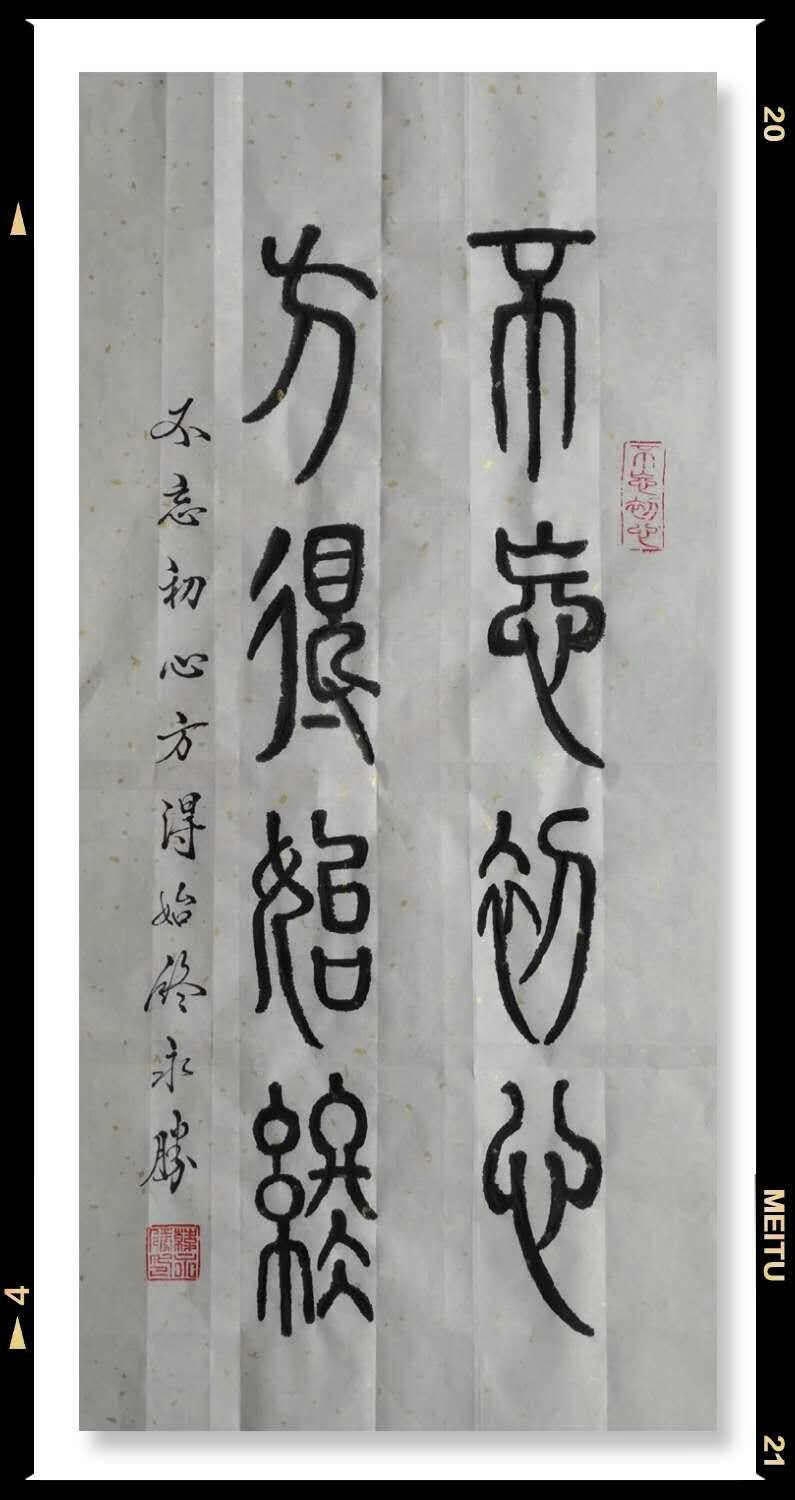 不忘初心
方得始終
不忘初心方得始終永勝
不忘初心
20
MEITU
21
4